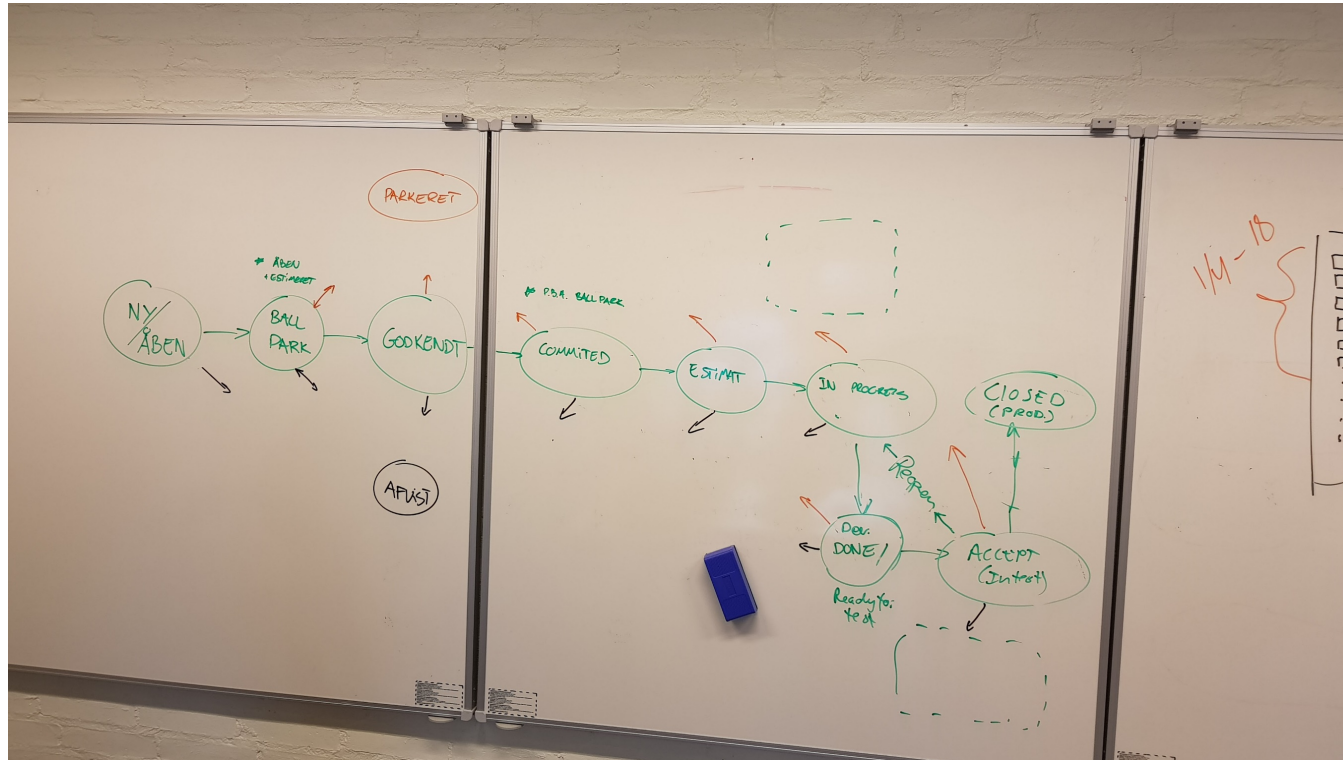 PARKERET
* ÅBEN
+ ESTIMERET
NY/
ÅBEN
BALL
PARK
GODKENDT
* P.B.A. BALLPARK
COMMITED
ESTIMAT
IN PROGRESS
CLOSED
(PROD.)
Reopen
AFVIST
Dev.
DONE/
Ready for
test
ACCEPT
(In test)
1/4-18